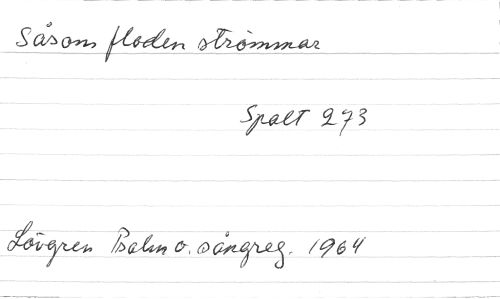 Såsom floden strömmar
Spalt 273
Lövgren Psalm o. sångreg. 1964